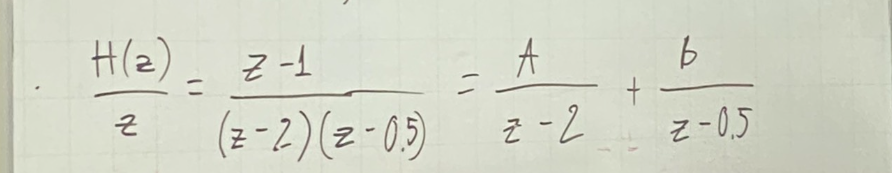 H(z)/z = z-1/((z-2)(z-0.5)) = A/(z-2) + b/(z-0.5)